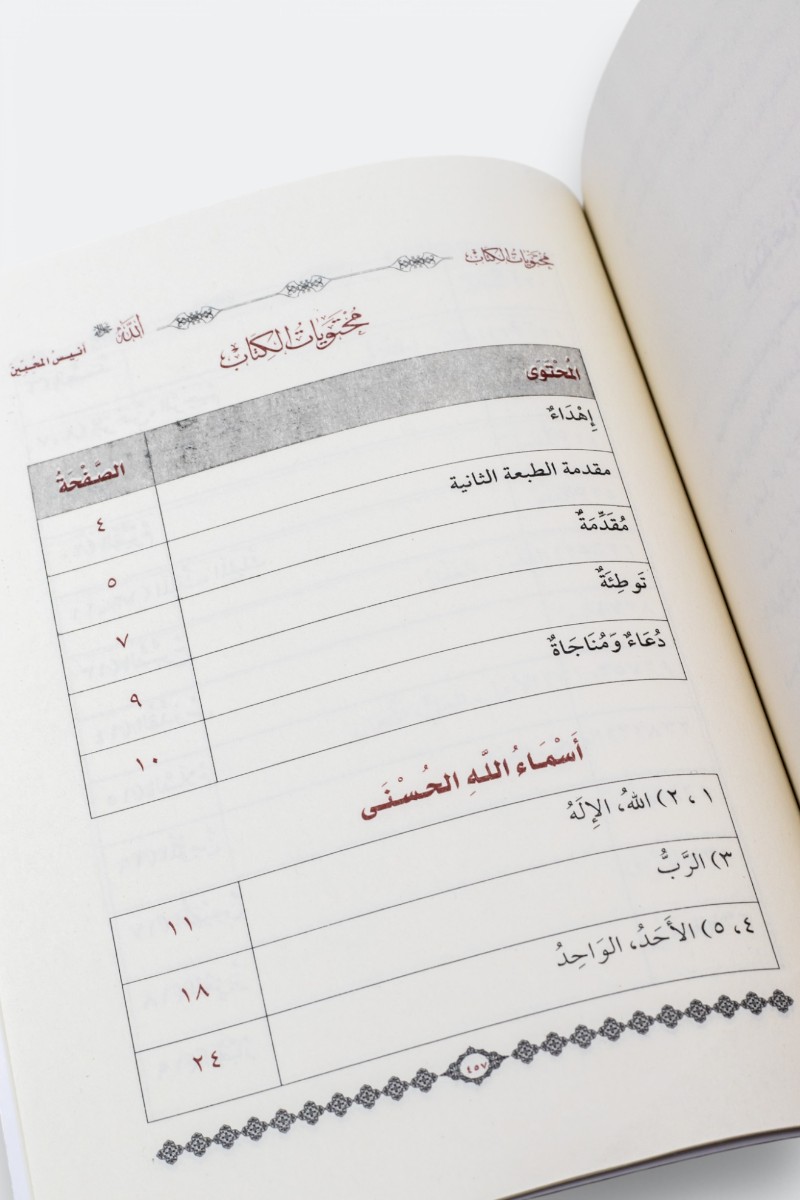 محتويات الكتاب
الله ﷻ أنيس المحبين
مُحْتَوَيَاتُ الكِتَابِ
المُحْتَوَى الصَّفْحَةُ
إِهْدَاءٌ ٤
مقدمة الطبعة الثانية ٥
مُقَدِّمَةٌ ٧
تَوطِئَةٌ ٩
دُعَاءٌ وَمُنَاجَاةٌ ١٠
أَسْمَاءُ اللَّهِ الحُسْنَى
١، ٢) اللهُ، الإِلَهُ ١١
٣) الرَّبُّ ١٨
٤، ٥) الأَحَدُ، الوَاحِدُ ٢٤
٤٥٧